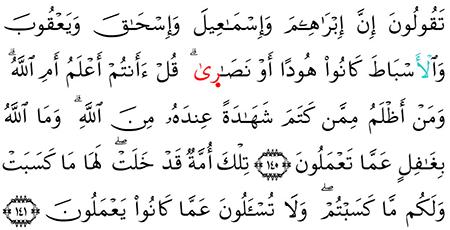 تَقُولُونَ إِنَّ إِبۡرَٰهِـۧمَ وَإِسۡمَٰعِيلَ وَإِسۡحَٰقَ وَيَعۡقُوبَ
وَٱلۡأَسۡبَاطَ كَانُواْ هُودًا أَوۡ نَصَٰرَىٰۗ قُلۡ ءَأَنتُمۡ أَعۡلَمُ أَمِ ٱللَّهُۗ
وَمَنۡ أَظۡلَمُ مِمَّن كَتَمَ شَهَٰدَةً عِندَهُۥ مِنَ ٱللَّهِۗ وَمَا ٱللَّهُ
بِغَٰفِلٍ عَمَّا تَعۡمَلُونَ ١٤٠ تِلۡكَ أُمَّةٞ قَدۡ خَلَتۡۖ لَهَا مَا كَسَبَتۡ
وَلَكُم مَّا كَسَبۡتُمۡۖ وَلَا تُسۡـَٔلُونَ عَمَّا كَانُواْ يَعۡمَلُونَ ١٤١